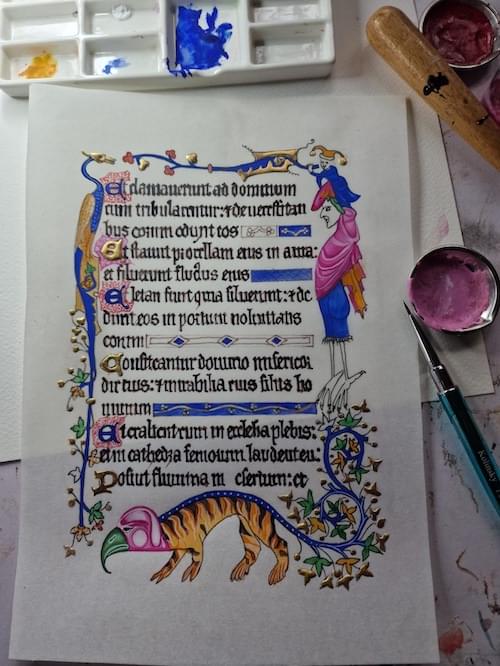 Et clamauerunt ad dominum
cum tribularentur: ⁊ de necessitati
bus eorum eduxit eos
Et statuit procellam eius in aura:
et siluerunt fluctus eius
Et letati sunt quia siluerunt: ⁊ de
duxit eos in portum uoluntatis
eorum
Confiteantur domino misericor
die eius: ⁊ mirabilia eius filiis ho
minum
Et exaltent eum in ecclesia plebis:
et in cathedra seniorum laudent eu:
Posuit flumina in desertum: et
Kolinsky